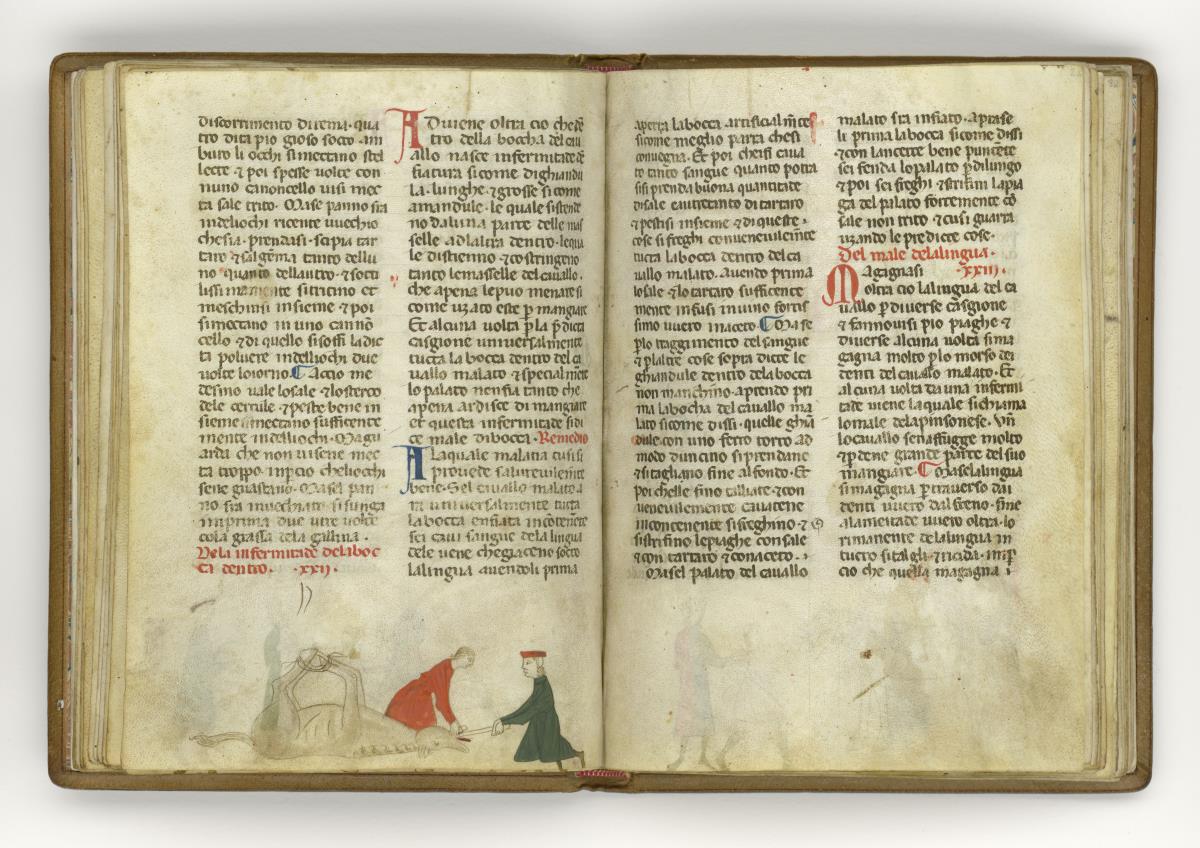 discorrimento di rema · qua
tro dita pio gioso socto · im
buto li occhi si mectano stel
lecte · ⁊ poi spesse volte con
nuno canoncello vi si mec
ta sale trito · Ma se panno sia
indeliochi ricente vuechio
che sia · prendasi · sepia tar
taro · ⁊ salgẽma tanto delu
no · quanto dellautro · ⁊ soti
lissimamente si tritino et
meschinsi insieme · ⁊ poi
si mectano in uno cannõ
cello · ⁊ di quello si soffi la dic
ta polvere indelliochi due
volte lo iorno · Accio me
desimo vale lo sale · ⁊ lo sterco
dele cercule · ⁊ peste bene in
sieme si mectano sufficente
mente indelliochi · Ma gu
arda che non vi sene mec
ta troppo · inpcio cheliocchi
sene guastano · Ma sel pan
no sia invechiato si funga
imprima due vtre volte
cola grassa dela gallina ·
Dela infermitade dela boc
ca dentro · XXII ·
Adiviene oltra cio che dẽ
tro della boccha del cav
allo nasce infermitade
fiatura sicome di ghiandu
la · lunghe · ⁊ grosse sicome
amandule · le quale sistende
no daluna parte delle mas
selle ad laltra dentro · lequa
le distienno · ⁊ costringeno
tanto le masselle del cavallo ·
che apena le puo menare si
come uzato este p mangiare
Et alcuna volta p la p dicta
casgione universalmente
tucta la bocca dentro del ca
vallo malato · ⁊ specialmẽte
lo palato nenfia tanto che
apena ardisce di mangiare
et questa infermitade si di
ce male di bocca · Remedio
Ala quale malatia cusi si
provede salutevilemente
bene · Sel cavallo malato a
ra universalmente tucta
la bocca enfiata incõtenẽte
sei cavi sangue dela lingua
dele vene che giaceno socto
la lingua avendoli prima
aperta la bocca · artificialmẽte
sicome meglio parra che si
convegna · Et poi chei si cava
to tanto sangue quanto potra
si si prenda buona quantitade
di sale ⁊ autretanto di tartaro
⁊ pestisi insieme · ⁊ di queste ·
cose si freghi convenevilemẽte
tucta la bocca dentro del ca
vallo malato · avendo prima
lo sale · ⁊ lo tartaro sufficente
mente infusi in vino fortis
simo vuero in aceto · Ma se
p lo traggimento del sangue
⁊ p laltre cose sopra dicte le
ghiandule dentro dela bocca
nõn manchino · aprendo pri
ma la bocha del cavallo ma
lato sicome dissi · quelle ghiã
dule · con uno ferro torto ad
modo duncino si prendane
⁊ si tagliano fine al fondo · Et
poi chelle sino talliate · ⁊ con
venevilemente cavatene
incontenente si freghino · ⁊
si strifini le piaghe con sale
⁊ con tartaro · ⁊ con aceto ·
Ma sel palato del cavallo
malato sia infiato · aprase
li prima la bocca sicome dissi
⁊ con lancecte bene pungẽte
sei fenda lo palato p dilungo
⁊ poi sei freghi · ⁊ strifini la pia
ga del palato fortemente cõ
sale non trito · ⁊ cusi guarra
uzando le predicte cose ·
Del male dela lingua ·
Magagnasi · XXIII ·
oltra cio la lingua del ca
vallo p diverse casgione
⁊ fannovisi pio piaghe · ⁊
diverse alcuna volta si ma
gagna molto p lo morso dei
denti del cavallo malato · Et
alcuna volta da una infermi
tade viene la quale si chiama
lo male dela pinsonese · Vñ
lo cavallo sen affligge molto
⁊ p dene grande parte del suo
mangiare · Ma se la lingua
si magagna p traverso dai
denti vuero dal freno · fine
ala mentade vuero oltra · lo
rimanente dela lingua in
tucto si talgli · ⁊ ricida · in p
cio che quella magagna i